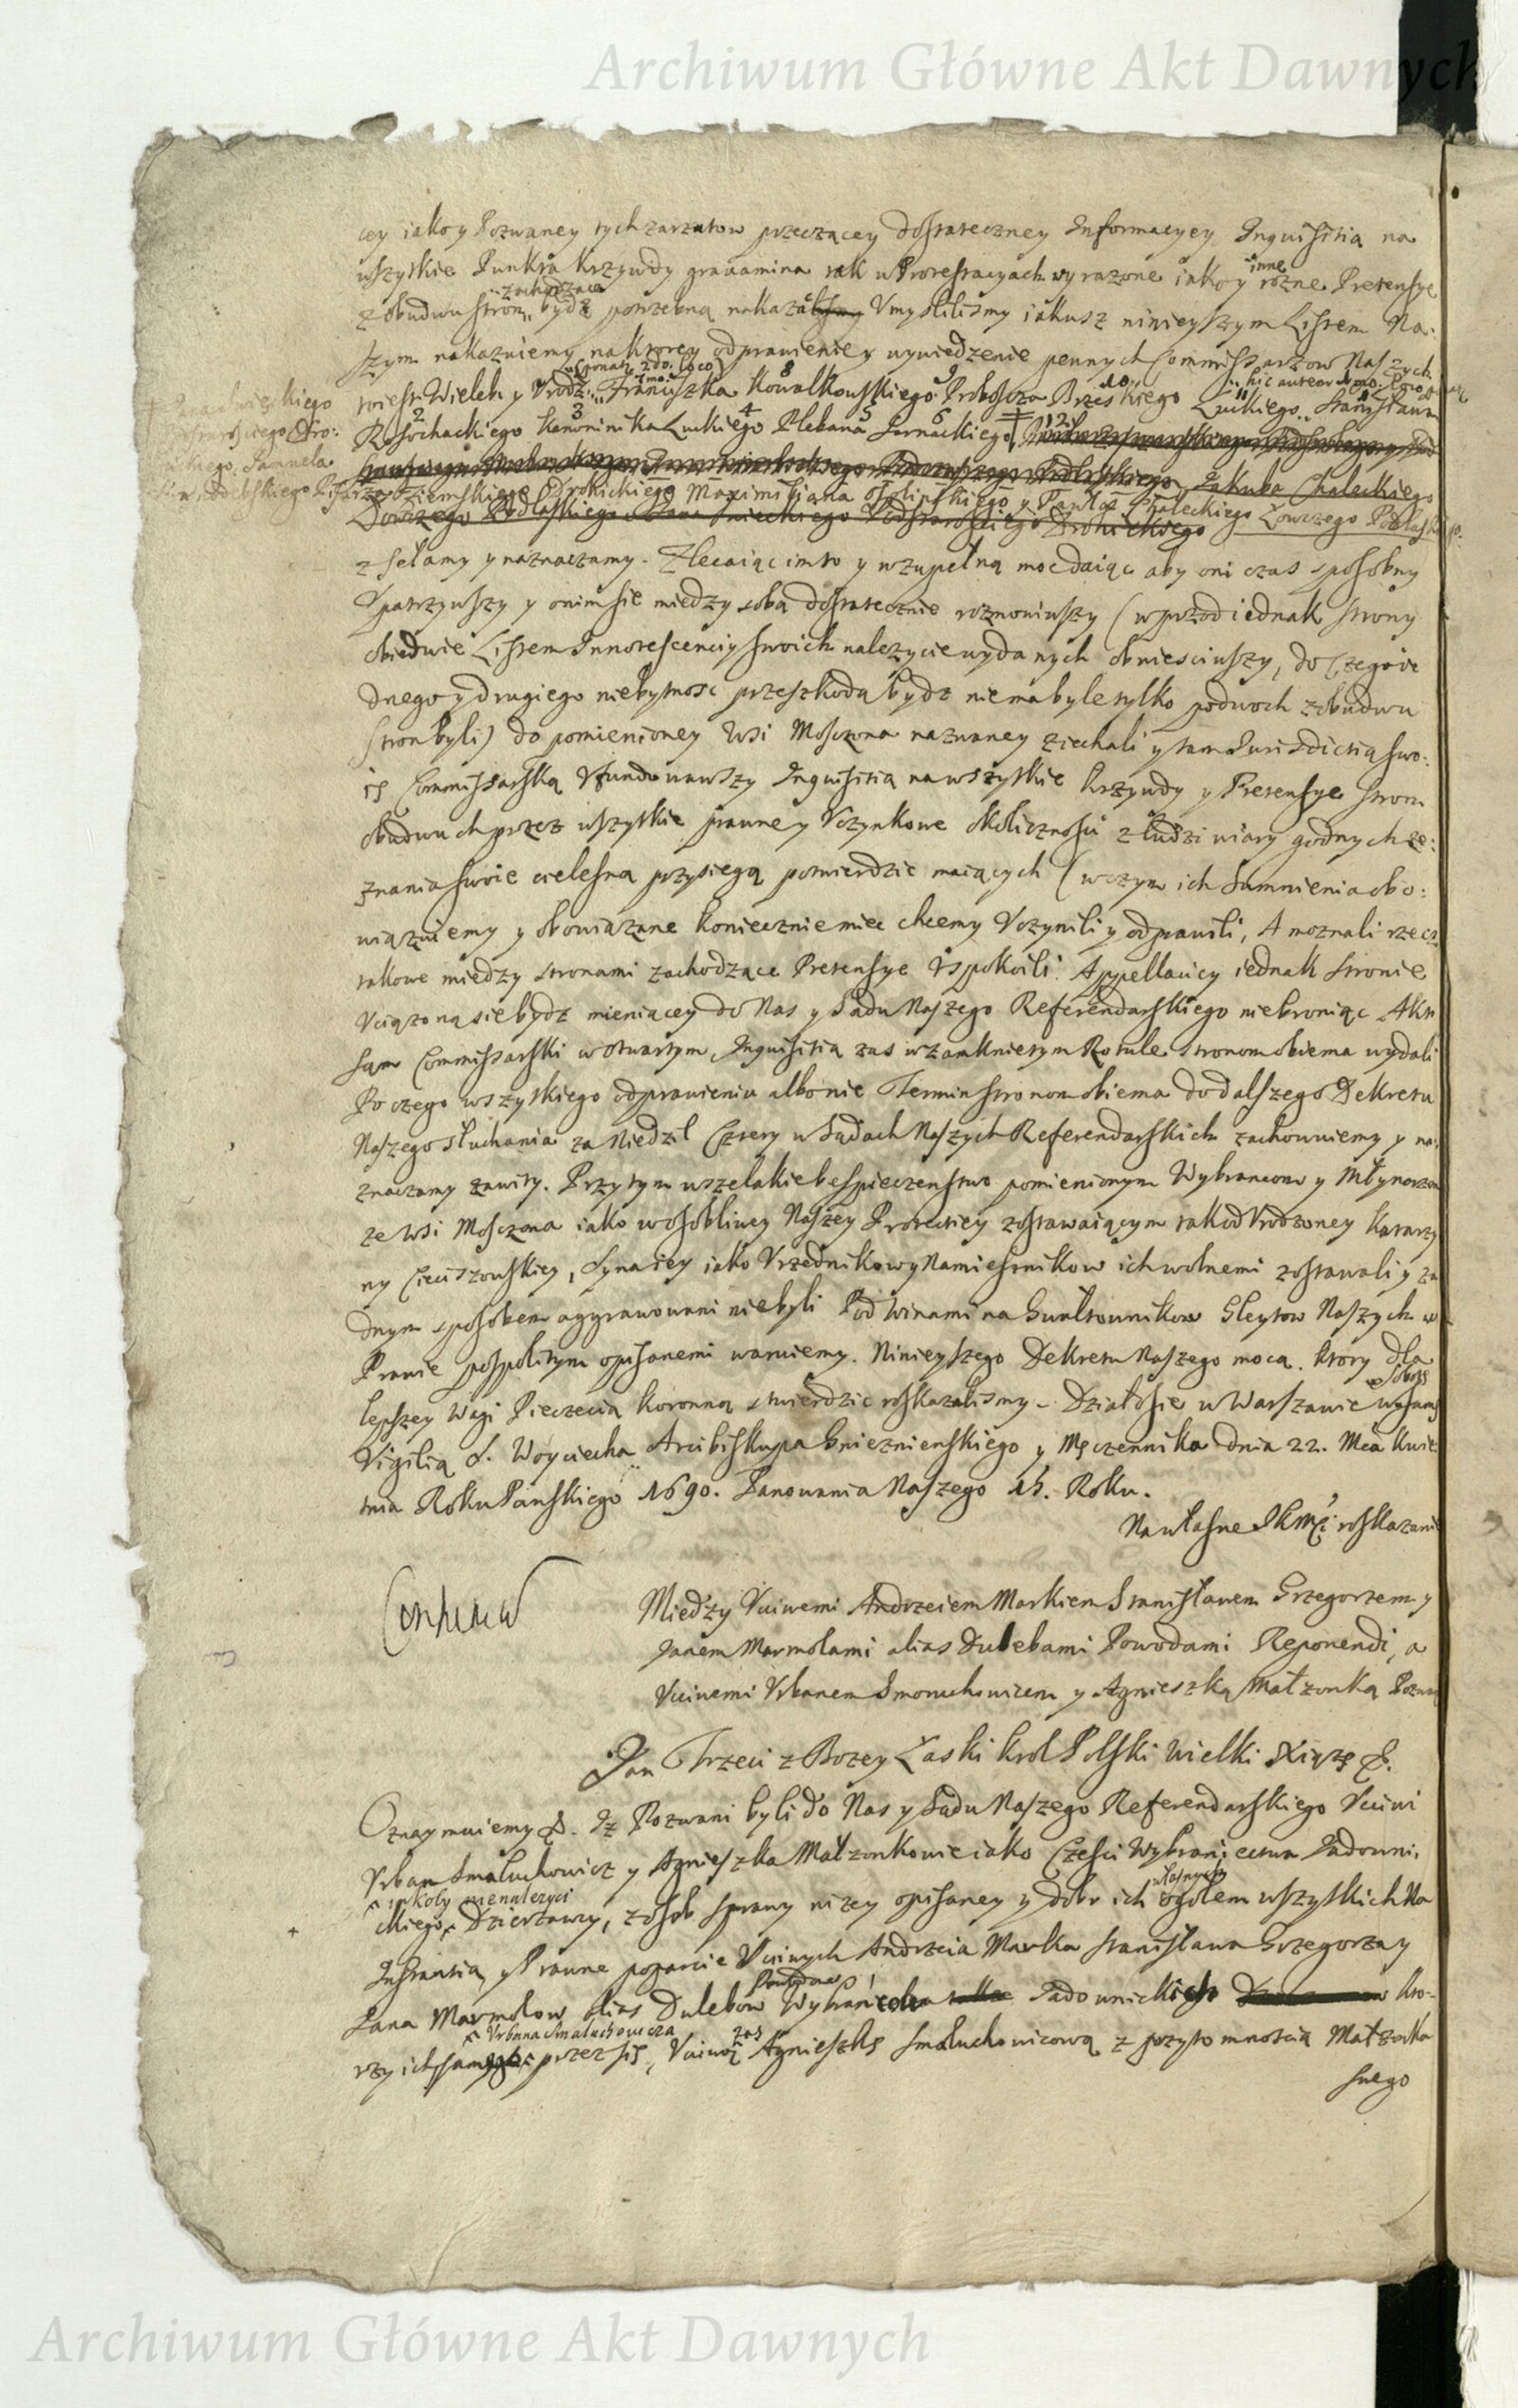 Archiwum Główne Akt Dawnych
cey iako y Pozwaney tych zarzutow przeczącey dostateczney Informacyey Inquisitią na
wszytkie Punkta krzywdy grauamina tak w Protestacyach wyrazone iako y inne rozne Pretensye
z obudwu stron zachodzące bydz potrzebną nakazalismy Vmyslilismy iakusz ninieyszym Listem Na:
szym nakazuiemy na ktorey odprawienie y wywiedzenie pewnych Commissarzow Naszych
Wieleb. y Vrodz. Franciszka Kowalkowskiego Proboscza Brzeskiego Łuckiego Stanisława
Rosochackiego Kanoninika Łuckiego Plebana Sarnackiego
Jakuba Chaleckiego
Ziemskiego Drohickiego Maximiliana Ossolinskiego y Pawła Chaleckiego Łowczego Podlaskie°
Łowczego Podlaskiego Podstarosciego Drohickiego
Samuela
zsełamy y naznaczamy. Zlecaiąc im to y wzupełną moc daiąc aby oni czas sposobny
Vpatrzywszy y onim sie miedzy sobą dostatecznie rozmowiwszy (wprzod iednak strony
obiedwie Listem Innotescenciy swoich nalezycie wydanych obwiesciwszy, do czego ie
dnego y drugiego niebytnosc przeszkodą bydz niema byle tylko po dwoch z obudwu
stron byli) do pomienioney Wsi Mosczona nazwaney ziechali y tam Iurisdictią swo:
ię Commissarską Vfundowawszy Inquisitią na wszytkie krzywdy y Pretensye stron
obudwuch przez wszytkie prawne y Vczynkowe okolicznosci z ludzi wiary godnych ze:
znania swoie cielesną przysięgą potwierdzic maiących (w czym ich Sumnienia obo:
wiązuiemy y obowiązane koniecznie miec chcemy Vczynili y odprawili, A moznali rzecz
takowe miedzy stronami zachodzące Pretensye Vspokoili. Appellaciey iednak stronie
Vciązoną sie bydz mieniącey do Nas y Sądu Naszego Referendarskiego niebroniąc Akt
sam Commissarski w otwartym, Inquisitią zas w zamknietym Rotule stronom obiema wydali
Po czego wszytkiego odprawieniu albo nie Termin stronom obiema do dalszego Dekretu
Naszego słuchania za Niedziel Cztery w Sądach Naszych Referendarskich zachowuiemy y na:
znaczamy zawity. Przytym wszelakie bespieczenstwo pomienionym Wybrancom y Młynarzom
ze Wsi Mosczona iako w osobliwey Naszey Protectiey zostawaiącym tak od Vrodzoney Katarzy
ny Cieciszowskiey, Syna iey iako Vrzednikow y Namiestnikow ich wolnemi zostawali y za
dnym sposobem aggrawowani niebyli Pod Winami na Gwałtownikow Gleytow Naszych w
Prawie pospolitym opisanemi waruiemy. Ninieyszego Dekretu Naszego mocą. ktory dla
lepszey Wagi Pieczęcią koronną stwierdzic roskazalismy. Działosie w Warszawie w sobotę w samą
Vigilią S. Woyciecha Arcibiskupa Gnieznienskiego y Męczennika dnia 22. Mca kwie
tnia Roku Panskiego 1690. Panowania Naszego 15. Roku.
Na własne JKMci roskazanie
Między Vciwemi Andrzeiem Markiem Stanisławem Grzegorzem y
Janem Marmolami alias Dulebami Powodami Reponendi, a
Vciwemi Vrbanem Smoluchowicem y Agnieszką Małzonką Pozwa
Jan Trzeci z Bozey Łaski krol Polski Wielki Xiąze &.
Oznaymuiemy &. Iz Pozwani byli do Nas y Sądu Naszego Referendarskiego Vciwi
Vrban Smoluchowicz y Agnieszka Małzonkowie iako Częsci Wybraniectwa Sadowni.
ckiego, Dzierzawcy, z osob sprawy nizey opisaney y dobr ich własnych ogołem wszytkich Na
Instantią y Prawne poparcie Vciwych Andrzeia Marka Stanisława Grzegorza y
Jana Marmolow alias Dulebow Sadownickich kto-
rzy ich Vrbana Smoluchowicza przez się, Vciwą zas Agnieszkę Smoluchowicową z przytomnoscią Małzonka
swego
Archiwum Główne Akt Dawnych